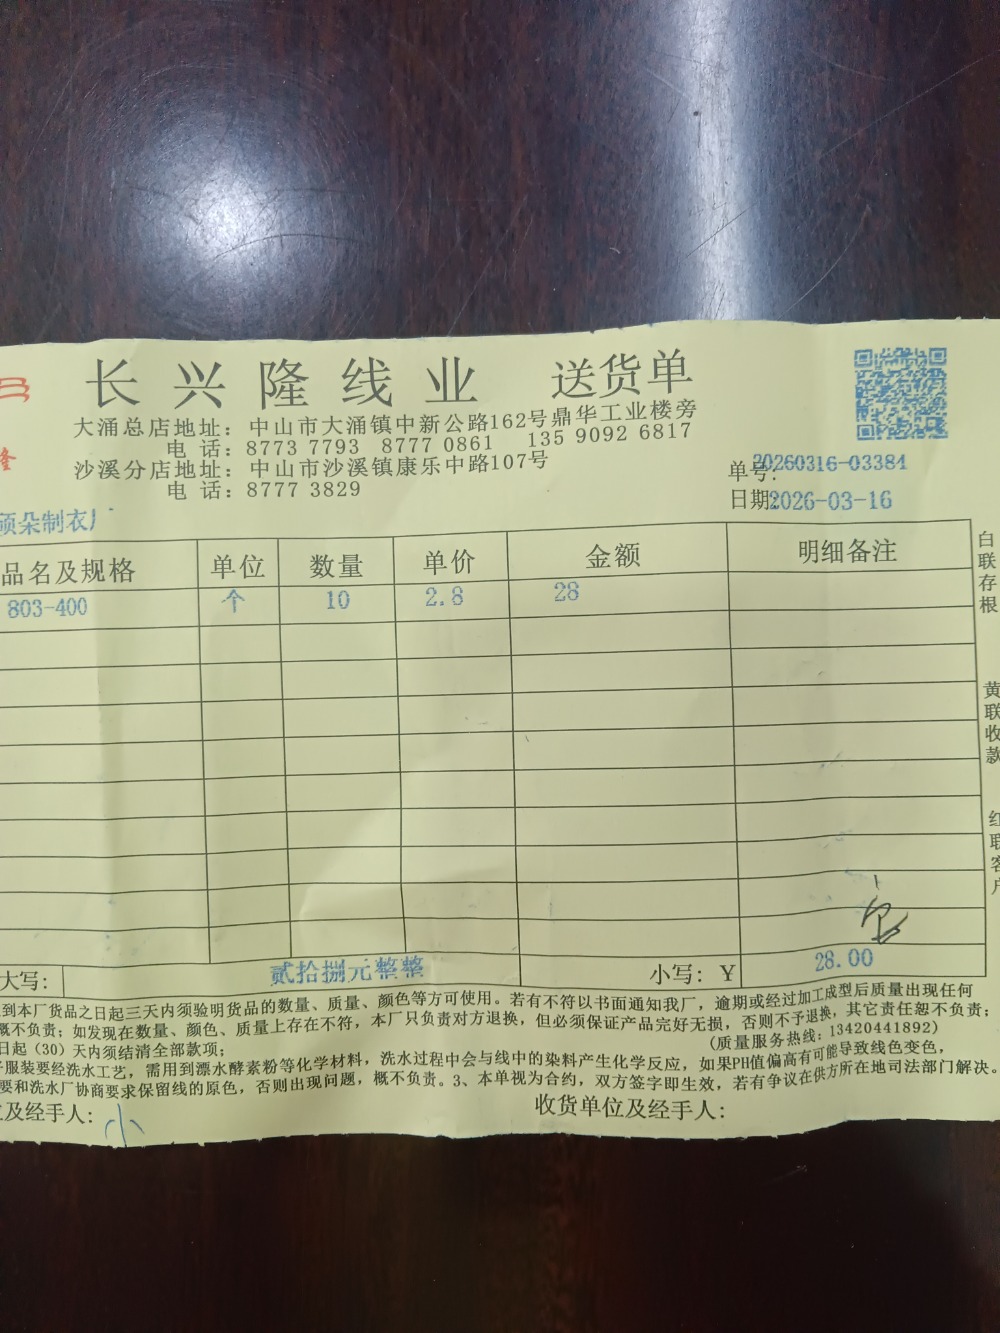 长兴隆线业 送货单
大涌总店地址：中山市大涌镇中新公路162号鼎华工业楼旁
电 话：8773 7793 8777 0861 135 9092 6817
沙溪分店地址：中山市沙溪镇康乐中路107号
电 话：8777 3829
隆
单号：20260316-03384
日期：2026-03-16
朵制衣厂
品名及规格 单位 数量 单价 金额 明细备注
803-400 个 10 2.8 28
大写： 贰拾捌元整整 小写：￥ 28.00
到本厂货品之日起三天内须验明货品的数量、质量、颜色等方可使用。若有不符以书面通知我厂，逾期或经过加工成型后质量出现任何
概不负责；如发现在数量、颜色、质量上存在不符，本厂只负责对方退换，但必须保证产品完好无损，否则不予退换，其它责任恕不负责；
日起（30）天内须结清全部款项； （质量服务热线：13420441892）
服装要经洗水工艺，需用到漂水酵素粉等化学材料，洗水过程中会与线中的染料产生化学反应，如果PH值偏高有可能导致线色变色，
要和洗水厂协商要求保留线的原色，否则出现问题，概不负责。3、本单视为合约，双方签字即生效，若有争议在供方所在地司法部门解决。
及经手人：小 收货单位及经手人：
白联存根
黄联收款
红联客户